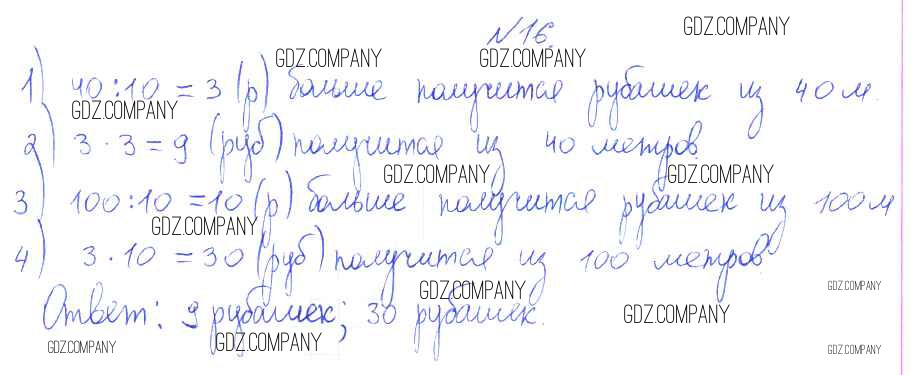 GDZ.COMPANY
№16.
GDZ.COMPANY GDZ.COMPANY
1) 40:10=3 (р) больше получится рубашек из 40 м.
GDZ.COMPANY
2) 3·3=9 (руб) получится из 40 метров.
GDZ.COMPANY GDZ.COMPANY
3) 100:10=10 (р) больше получится рубашек из 100 м
GDZ.COMPANY
4) 3·10=30 (руб) получится из 100 метров
GDZ.COMPANY GDZ.COMPANY
Ответ: 9 рубашек; 30 рубашек.
GDZ.COMPANY
GDZ.COMPANY GDZ.COMPANY GDZ.COMPANY